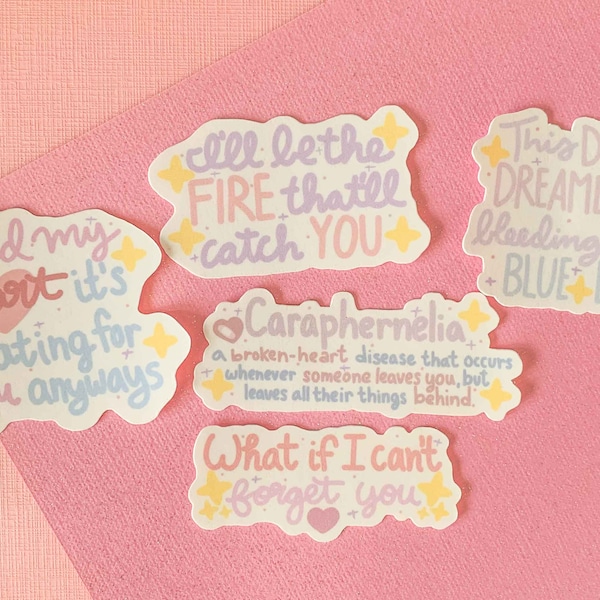 I'll be the
FIRE that'll
catch YOU
d my
art it's
ating for
u anyways
Caraphernelia
a broken-heart disease that occurs
whenever someone leaves you, but
leaves all their things behind.
What if I can't
forget you
This D
DREAME
bleeding
BLUE